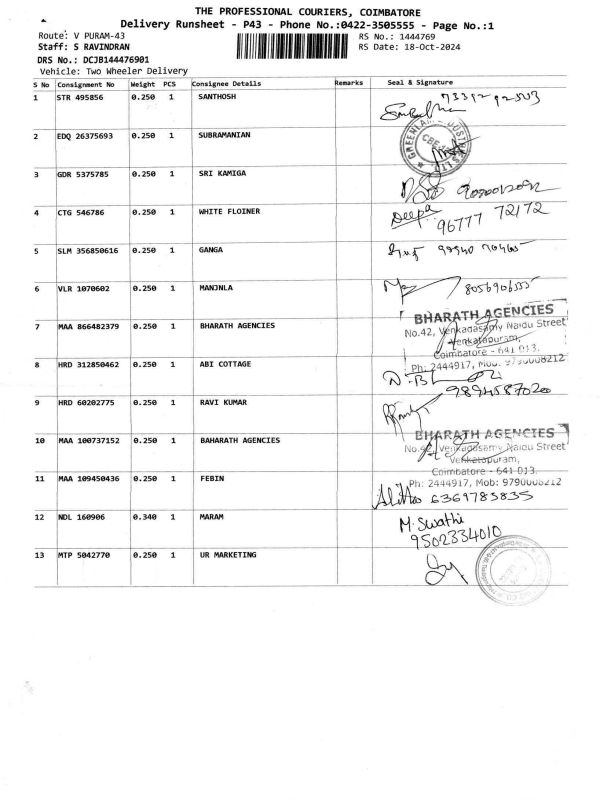 THE PROFESSIONAL COURIERS, COIMBATORE
Delivery Runsheet - P43 - Phone No.:0422-3505555 - Page No.:1
Route: V PURAM-43 RS No.: 1444769
Staff: S RAVINDRAN RS Date: 18-Oct-2024
DRS No.: DCJB144476901
Vehicle: Two Wheeler Delivery
S No Consignment No Weight PCS Consignee Details Remarks Seal & Signature
1 STR 495856 0.250 1 SANTHOSH
2 EDQ 26375693 0.250 1 SUBRAMANIAN
3 GDR 5375785 0.250 1 SRI KAMIGA
4 CTG 546786 0.250 1 WHITE FLOINER Deepa
96777 72172
5 SLM 356850616 0.250 1 GANGA
6 VLR 1070602 0.250 1 MANJNLA
BHARATH AGENCIES
7 MAA 866482379 0.250 1 BHARATH AGENCIES No.42, Venkadasamy Naidu Street
Venkatapuram,
Coimbatore - 641 013.
8 HRD 312850462 0.250 1 ABI COTTAGE Ph: 2444917, Mob: 9790008212
9894587020
9 HRD 60202775 0.250 1 RAVI KUMAR
BHARATH AGENCIES
10 MAA 100737152 0.250 1 BAHARATH AGENCIES No.42, Venkadasamy Naidu Street
Venkatapuram,
Coimbatore - 641 013.
11 MAA 109450436 0.250 1 FEBIN Ph: 2444917, Mob: 9790008212
6369783835
12 NDL 160906 0.340 1 MARAM M. Swathi
9502334010
13 MTP 5042770 0.250 1 UR MARKETING